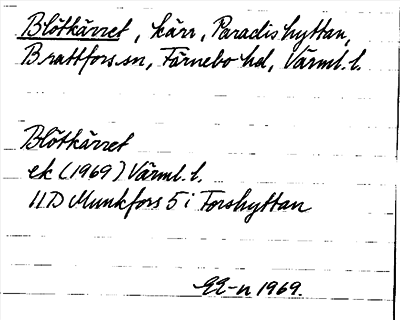 Blötkärret, kärr, Paradishyttan,
Brattfors sn, Färnebo hd, Värml. l.
Blötkärret
ek (1969) Värml. l.
11D Munkfors 5 i Forshyttan
1969.